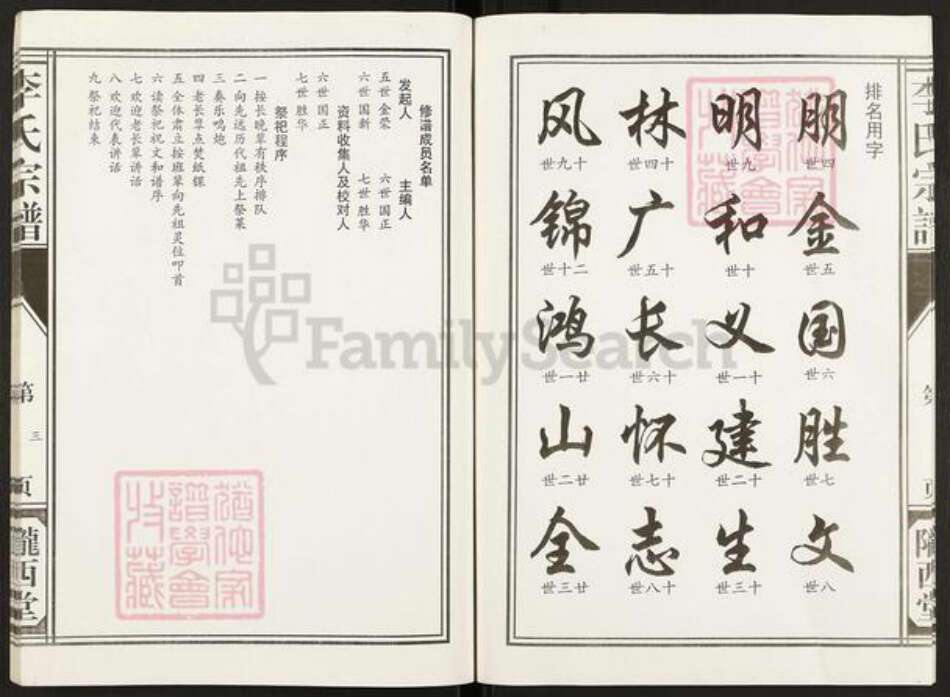 李氏宗譜
隴西堂
排名用字
朋 四世
金 五世
国 六世
胜 七世
文 八世
明 九世
和 十世
义 十一世
建 十二世
生 十三世
林 十四世
广 十五世
长 十六世
怀 十七世
志 十八世
风 十九世
锦 二十世
鸿 廿一世
山 廿二世
全 廿三世
修谱成员名单
发起人 主编人
五世 金荣 六世 国正
六世 国新 七世 胜华
资料收集人及校对人
六世 国正
七世 胜华
祭祀程序
一 按长晚辈有秩序排队
二 向先远历代祖先上祭菜
三 奏乐鸣炮
四 老长辈点焚纸锞
五 全体肃立按班辈向先祖灵位叩首
六 读祭祀祝文和谱序
七 欢迎老长辈讲话
八 欢迎代表讲话
九 祭祀结束
李氏宗譜
第三页
隴西堂
FamilySearch
譜學會
收藏